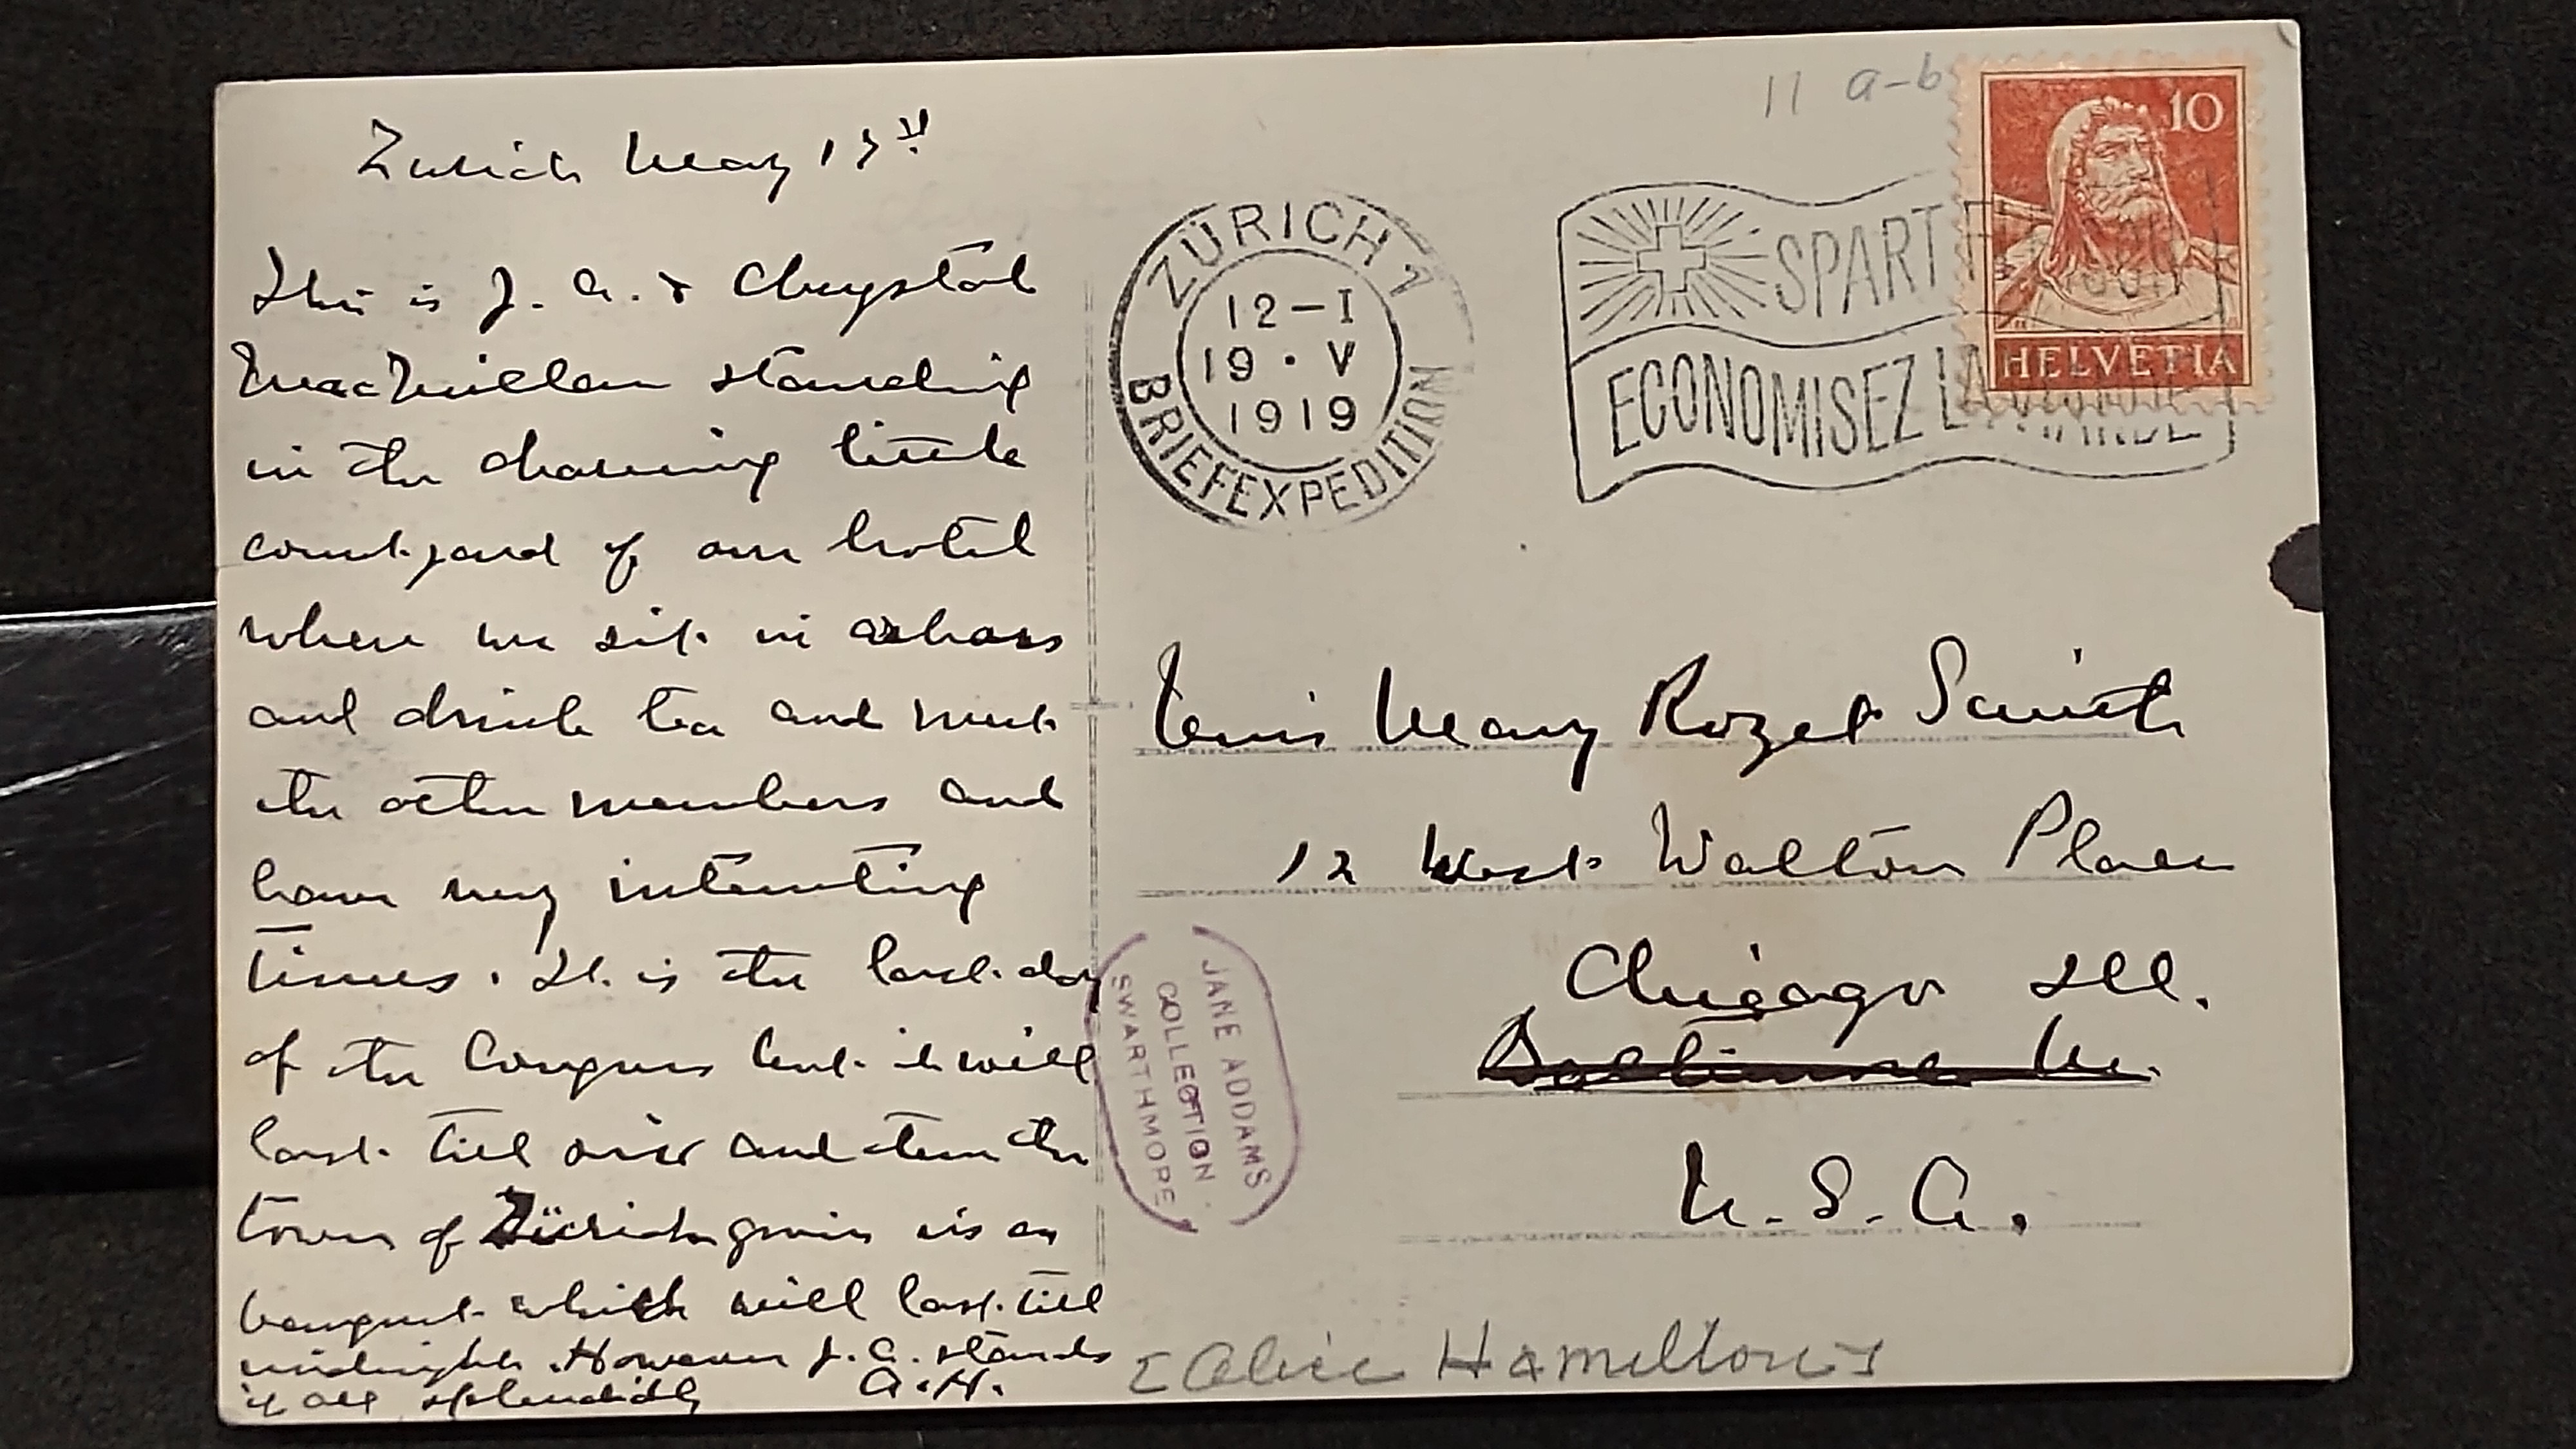 Zurich May 17th
This is J. A. & Chrystal
MacMillan standing
in the charming little
courtyard of our hotel
where we sit in arbors
and drink tea and meet
the other members and
have very interesting
times. It is the last day
of the Congress but it will
last till six and then the
town of Zürich gives us an
banquet which will last till
midnight. However J. A. stands
it all splendidly
A. H.
11 a-b
10
HELVETIA
ZÜRICH 1
12-I
19 • V
1919
BRIEFEXPEDITION
SPART
ECONOMISEZ LA
Miss Mary Rozet Smith
12 West Walton Place
Chicago Ill.
Baltimore M.
U. S. A.
JANE ADDAMS
COLLECTION
SWARTHMORE
[Alice Hamilton]